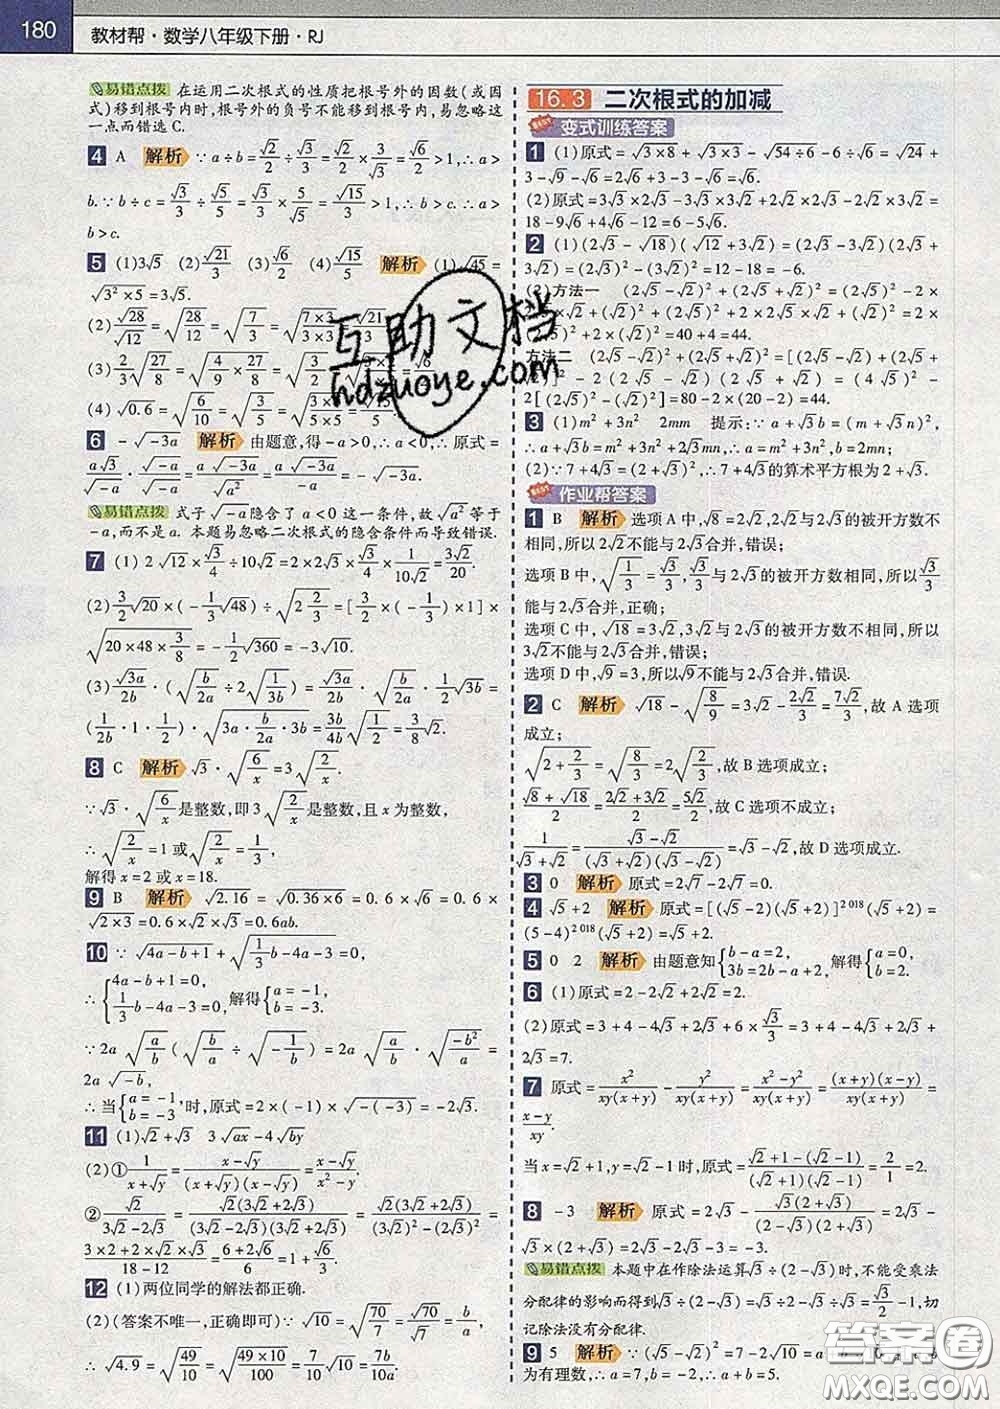 180
教材帮·数学八年级下册·RJ
易错点拨 在运用二次根式的性质把根号外的因数(或因
式)移到根号内时,根号外的负号不能移到根号内,易忽略这
一点而错选 C.
4 A 解析 ∵a÷b=√2/2÷√3/3=√2/2×3/√3=√6/2>1,∴a>
b.∵b÷c=√3/3÷√5/5=√3/3×5/√5=√15/3>1,∴b>c.∴a>
b>c.
5 (1)3√5 (2)√21/3 (3)√6/2 (4)√15/5 解析 (1)√45=
√(3²×5)=3√5.
(2)√28/√12=√(28/12)=√(7/3)=√((7×3)/(3×3))=√21/
(3)2/3√(27/8)=√(4/9×27/8)=√(3/2)
(4)√0.6=√(6/10)=√(3/5)=√((3×5)/(5×5))
6 -√(-3a) 解析 由题意,得-a>0,∴a<0,∴原式=
a√3/√(-a)·√(-a)/√(-a)=a√(-3a)/√(a²)=a√(-3a)/(-a)=-√(-3a).
易错点拨 式子√(-a)隐含了 a<0 这一条件,故√(a²)等于
-a,而不是a. 本题易忽略二次根式的隐含条件而导致错误.
7 (1)2√12×√3/4÷10√2=2√12×√3/4×1/(10√2)=3√2/20.
(2)3/2√20×(-1/3√48)÷√(2 2/3)=[3/2×(-1/3)×1]×
√(20×48×3/8)=-1/2√360=-3√10.
(3)√(3a)/2b·(√(b/2a)÷2√(1/3b))=√(3a)/2b·√(b/2a)·1/2√(3b)=
(1/2b·1·1/2)·√(3a·b/2a·3b)=3b/4b√(1/2)=3/8√2.
8 C 解析 √3·√(6/x)=3√(2/x).
∵√3·√(6/x)是整数,即3√(2/x)是整数,且x为整数,
∴√(2/x)=1或√(2/x)=1/3,
解得x=2或x=18.
9 B 解析 √2.16=√(0.36×6)=0.6×√6=0.6×
√(2×3)=0.6×√2×√3=0.6ab.
10 ∵√(4a-b+1)+√(1/3b-4a-3)=0,
∴{4a-b+1=0, 1/3b-4a-3=0, 解得{a=-1, b=-3.
∵2a√(a/b)(√(b/a)÷√(-1/b))=2a√(a/b)·√(-b²/a)=
2a√(-b),
∴当{a=-1, b=-3,时,原式=2×(-1)×√(-(-3))=-2√3.
11 (1)√2+√3 3√(ax)-4√(by)
(2)①1/(x+√y)=(x-√y)/((x+√y)(x-√y))=(x-√y)/(x²-y).
②√2/(3√2-2√3)=√2(3√2+2√3)/((3√2-2√3)(3√2+2√3))=√2(3√2+2√3)/((3√2)²-(2√3)²)=
(3×2+2×√2×√3)/(18-12)=(6+2√6)/6=1+√6/3.
12 (1)两位同学的解法都正确.
(2)(答案不唯一,正确即可)∵√10=√(70/7)=√70/√7=b/a,
∴√4.9=√(49/10)=√((49×10)/100)=7√10/10=7b/10a.
16.3 二次根式的加减
变式训练答案
1 (1)原式=√(3×8)+√(3×3)-√(54÷6)-6÷√6=√24+
3-√9-√6=2√6+3-3-√6=√6.
(2)原式=3√3×2√3-3√3×√2+2√2×2√3-2√2×√2=
18-9√6+4√6-12=6-5√6.
2 (1)(2√3-√18)(√12+3√2)=(2√3-3√2)(2√3+
3√2)=(2√3)²-(3√2)²=12-18=-6.
(2)方法一 (2√5-√2)²+(2√5+√2)²=(2√5)²-2×
2√5×√2+(√2)²+(2√5)²+2×2√5×√2+(√2)²=(2√5)²×
2+(√2)²×2=40+4=44.
方法二 (2√5-√2)²+(2√5+√2)²=[(2√5-√2)+(2√5+
√2)]²-2(2√5-√2)(2√5+√2)=(4√5)²-
2[(2√5)²-(√2)²]=80-2×(20-2)=44.
3 (1)m²+3n² 2mn 提示:∵a+√3b=(m+√3n)²,
∴a+√3b=m²+3n²+2√3mn,∴a=m²+3n²,b=2mn;
(2)∵7+4√3=(2+√3)²,∴7+4√3的算术平方根为2+√3.
作业帮答案
1 B 解析 选项A中,√8=2√2,2√2与2√3的被开方数不
相同,所以2√2不能与2√3合并,错误;
选项B中,√(1/3)=√3/3,√3/3与2√3的被开方数相同,所以√3/3
能与2√3合并,正确;
选项C中,√18=3√2,3√2与2√3的被开方数不相同,所以
3√2不能与2√3合并,错误;
选项D中,√9=3,所以√9不能与2√3合并,错误.
2 C 解析 √18-√(8/9)=3√2-2√2/3=7√2/3,故A选项
成立;
√(2+2/3)=√(8/3)=2√(2/3),故B选项成立;
(√8+√18)/2=(2√2+3√2)/2=5√2/2,故C选项不成立;
1/(√3+√2)=(√3-√2)/((√3+√2)(√3-√2))=√3-√2,故D选项成立.
3 0 解析 原式=2√7-2√7=0.
4 √5+2 解析 原式=[(√5-2)(√5+2)]²⁰¹⁸(√5+2)=
(5-4)²⁰¹⁸(√5+2)=√5+2.
5 0 2 解析 由题意知{b-a=2, 3b=2b-a+2,解得{a=0, b=2.
6 (1)原式=2-2√2+2√2=2.
(2)原式=3+4-4√3+2√3+6×√3/3=3+4-4√3+2√3+
2√3=7.
7 原式=x²/(xy(x+y))-y²/(xy(x+y))=(x²-y²)/(xy(x+y))=(x+y)(x-y)/(xy(x+y))=
(x-y)/xy.
当x=√2+1,y=√2-1时,原式=(√2+1-(√2-1))/((√2+1)(√2-1))=2/1=2.
8 -3 解析 原式=2√3-√3(2+√3)/((2-√3)(2+√3))=2√3-
√3(2+√3)=2√3-2√3-3=-3.
易错点拨 本题中在作除法运算√3÷(2-√3)时,不能受乘法
分配律的影响而得到√3÷(2-√3)=√3÷2-√3÷√3=√3/2-1,切
记除法没有分配律.
9 5 解析 ∵(√5-√2)²=7-2√10=a+b√10,
为有理数,∴a=7,b=-2,∴a+b=5.
互助文档
hdzuoye.com
答案圈
MXQE.COM